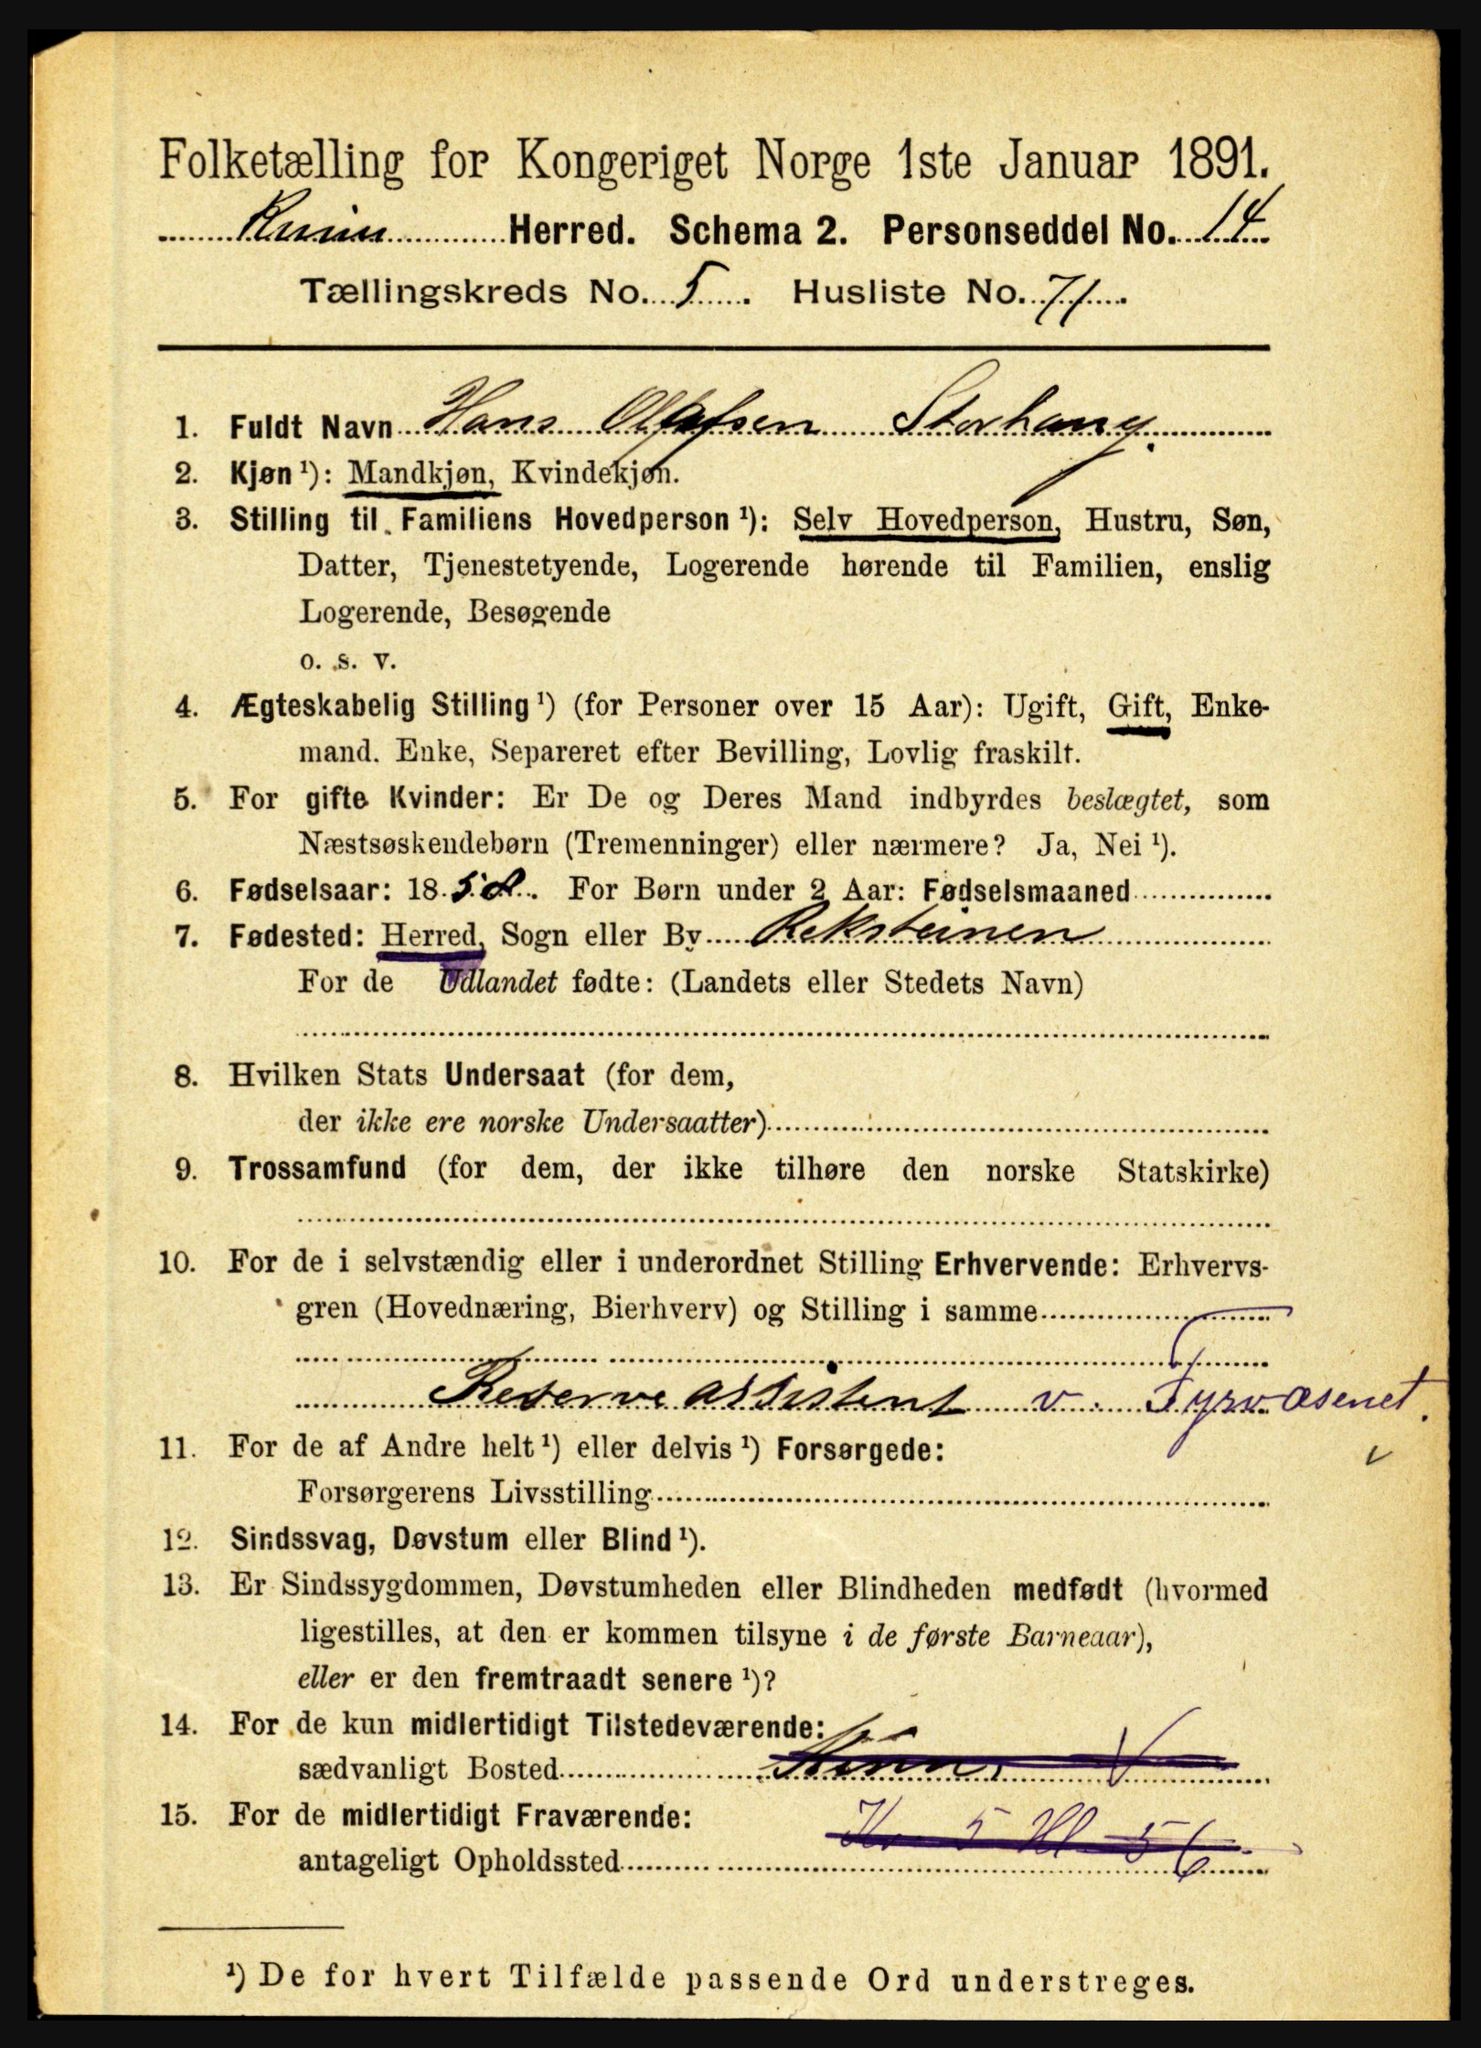 Folketælling for Kongeriget Norge 1ste Januar 1891.
Kinn Herred. Schema 2. Personseddel No. 14
Tællingskreds No. 5. Husliste No. 71.
1. Fuldt Navn Hans Olafsen Storhaug.
2. Kjøn ¹): Mandkjøn, Kvindekjøn.
3. Stilling til Familiens Hovedperson ¹): Selv Hovedperson, Hustru, Søn,
Datter, Tjenestetyende, Logerende hørende til Familien, enslig
Logerende, Besøgende
o. s. v.
4. Ægteskabelig Stilling ¹) (for Personer over 15 Aar): Ugift, Gift, Enke-
mand. Enke, Separeret efter Bevilling, Lovlig fraskilt.
5. For gifte Kvinder: Er De og Deres Mand indbyrdes beslægtet, som
Næstsøskendebørn (Tremenninger) eller nærmere? Ja, Nei ¹).
6. Fødselsaar: 1858. For Børn under 2 Aar: Fødselsmaaned
7. Fødested: Herred, Sogn eller By Reksteinen
For de Udlandet fødte: (Landets eller Stedets Navn)
8. Hvilken Stats Undersaat (for dem,
der ikke ere norske Undersaatter)
9. Trossamfund (for dem, der ikke tilhøre den norske Statskirke)
10. For de i selvstændig eller i underordnet Stilling Erhvervende: Erhvervs-
gren (Hovednæring, Bierhverv) og Stilling i samme
Reserveassistent v. Fyrvæsenet.
11. For de af Andre helt ¹) eller delvis ¹) Forsørgede:
Forsørgerens Livsstilling
12. Sindssvag, Døvstum eller Blind ¹).
13. Er Sindssygdommen, Døvstumheden eller Blindheden medfødt (hvormed
ligestilles, at den er kommen tilsyne i de første Barneaar),
eller er den fremtraadt senere ¹)?
14. For de kun midlertidigt Tilstedeværende:
sædvanligt Bosted Kinn
15. For de midlertidigt Fraværende:
Kr 5 Hl 56
antageligt Opholdssted
¹) De for hvert Tilfælde passende Ord understreges.